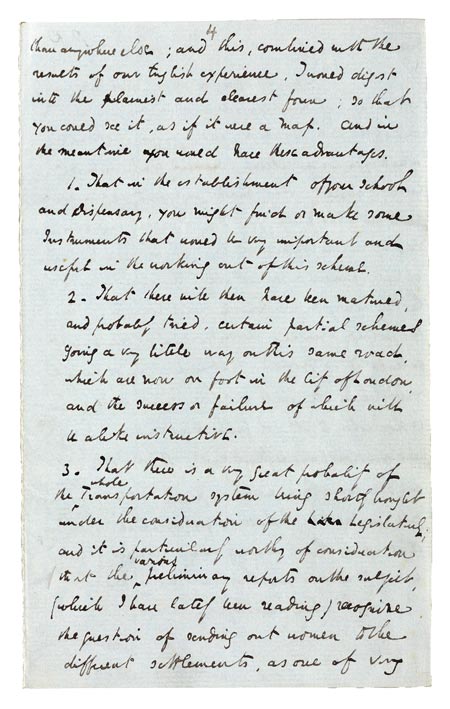 4
than anywhere else; and this, combined with the
results of our English experience, I would digest
into the plainest and clearest form; so that
you could see it, as if it were a map. And in
the meantime you would have these advantages.
1. That in the establishment of your school
and dispensary, you might find or make some
Instruments that would be very important and
useful in the working out of this scheme.
2. That there will then have been matured,
and probably tried, certain partial schemes
going a very little way on this same road,
which are now on foot in the City of London,
and the success or failure of which will
be alike instructive.
3. That there is a very great probability of
the whole Transportation system being shortly brought
under the consideration of the Legislature;
and it is particularly worthy of consideration
that the various preliminary reports on the subject,
(which I have lately been reading) recognize
the question of sending out women to the
different settlements, as one of very